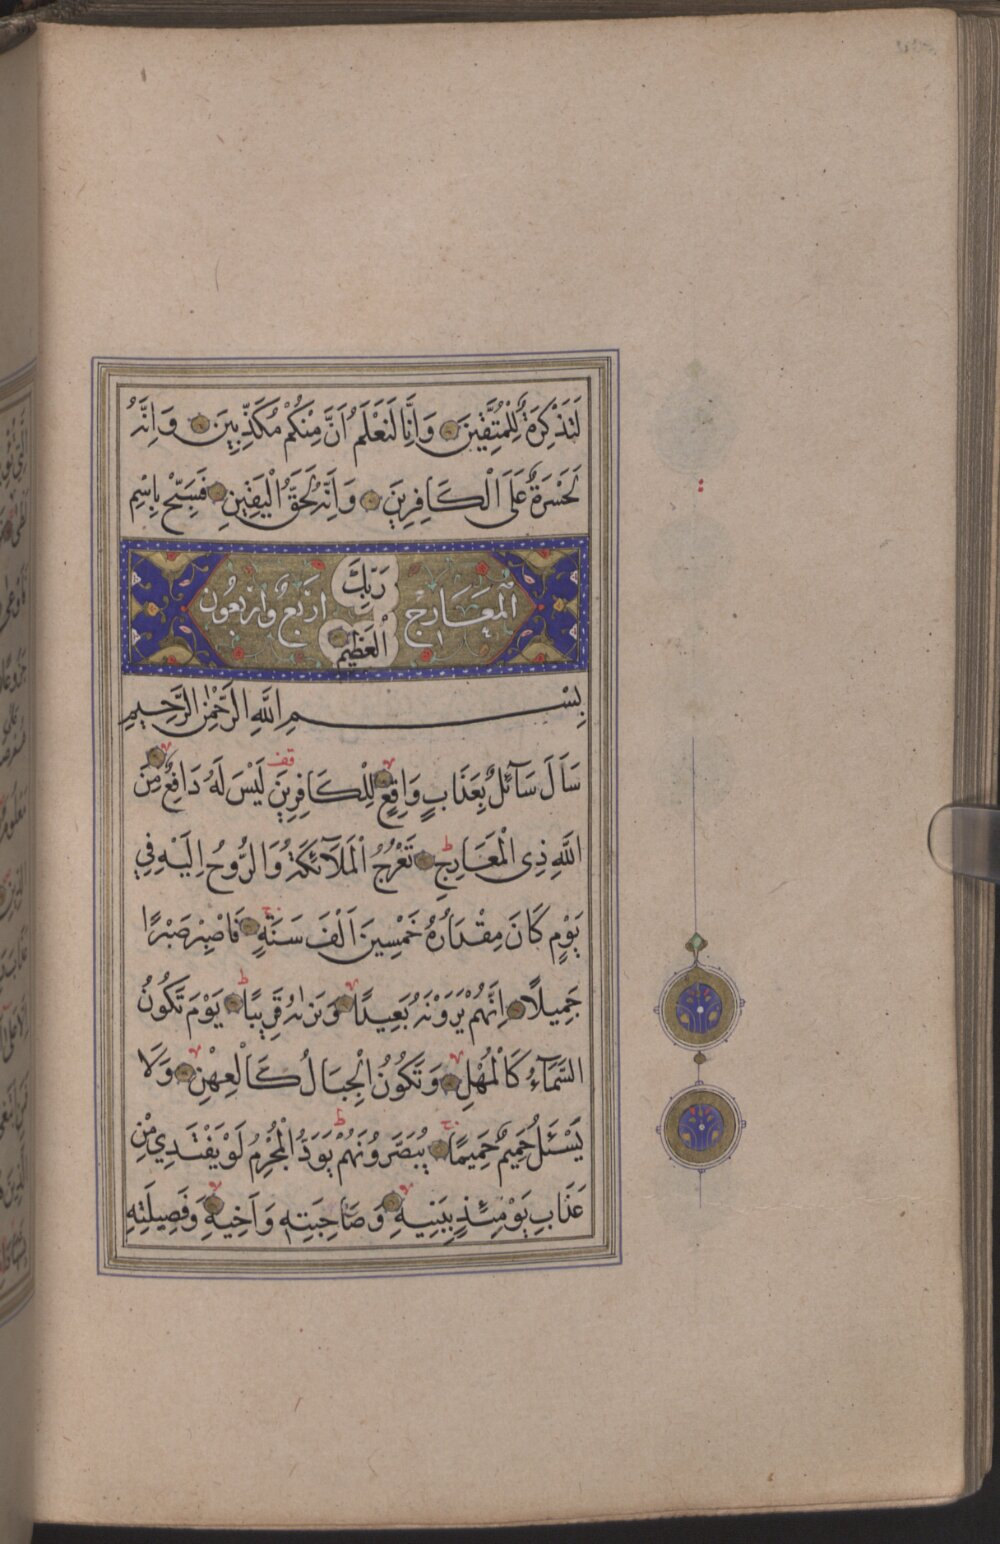 لَتَذْكِرَةٌ لِلْمُتَّقِينَ وَاِنَّا لَنَعْلَمُ اَنَّ مِنْكُمْ مُكَذِّبِينَ وَاِنَّهُ
لَحَسْرَةٌ عَلَى الْكَافِرِينَ وَاِنَّهُ لَحَقُّ الْيَقِينِ فَسَبِّحْ بِاسْمِ
رَبِّكَ
اَلْمَعَارِجُ اَرْبَعٌ وَاَرْبَعُونَ
الْعَظِيمِ
بِسْمِ اللّٰهِ الرَّحْمٰنِ الرَّحِيمِ
سَاَلَ سَآئِلٌ بِعَذَابٍ وَاقِعٍ لِلْكَافِرِينَ قف لَيْسَ لَهُ دَافِعٌ مِنَ
اللّٰهِ ذِى الْمَعَارِجِ ط تَعْرُجُ الْمَلَآئِكَةُ وَالرُّوحُ اِلَيْهِ فِي
يَوْمٍ كَانَ مِقْدَارُهُ خَمْسِينَ اَلْفَ سَنَةٍ ج فَاصْبِرْ صَبْرًا
جَمِيلًا اِنَّهُمْ يَرَوْنَهُ بَعِيدًا وَنَرٰىهُ قَرِيبًا ط يَوْمَ تَكُونُ
السَّمَآءُ كَالْمُهْلِ وَتَكُونُ الْجِبَالُ كَالْعِهْنِ وَلَا
يَسْئَلُ حَمِيمٌ حَمِيمًا ج يُبَصَّرُونَهُمْ ط يَوَدُّ الْمُجْرِمُ لَوْ يَفْتَدِي مِنْ
عَذَابِ يَوْمِئِذٍ بِبَنِيهِ وَصَاحِبَتِهِ وَاَخِيهِ وَفَصِيلَتِهِ